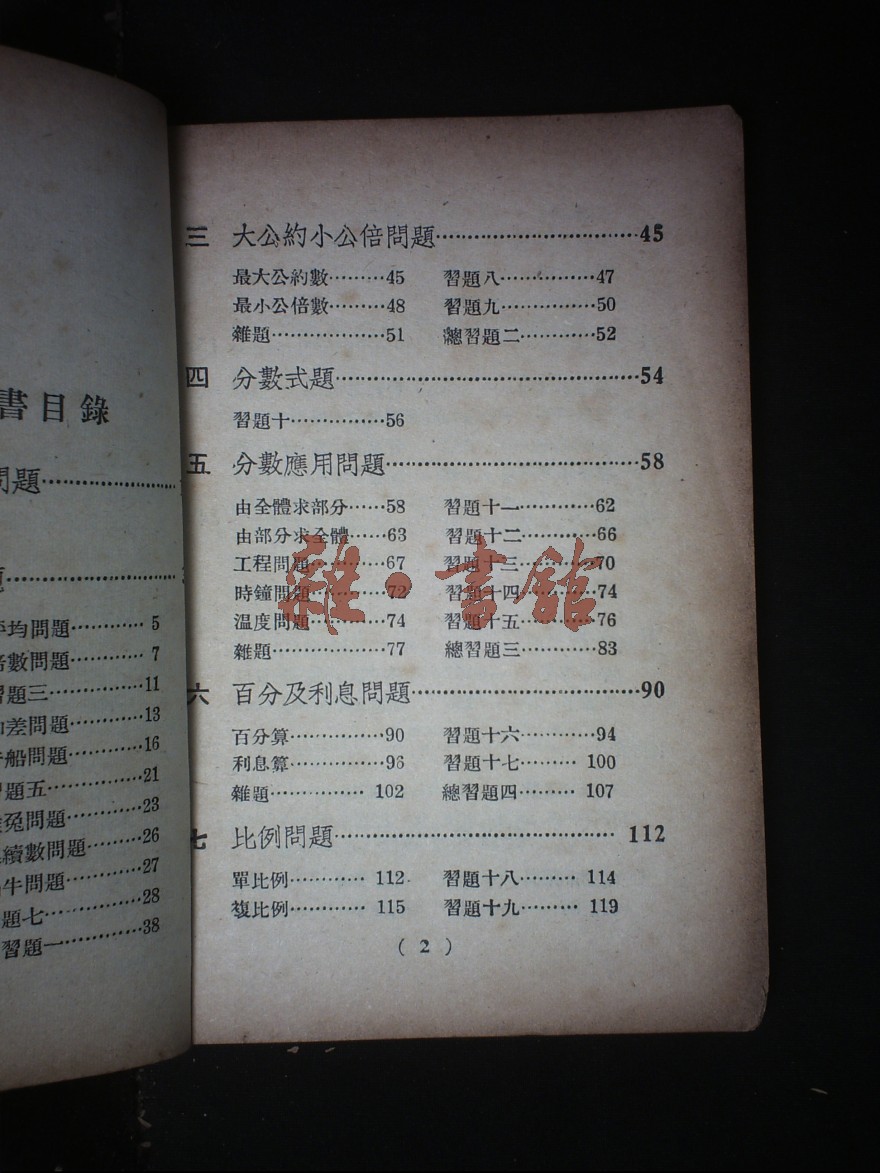 書目錄
問題……
題……
平均問題……5
倍數問題……7
習題三……11
和差問題……13
行船問題……16
習題五……21
雞兔問題……23
連續數問題……26
牛問題……27
題七……28
習題一……38
三 大公約小公倍問題……45
最大公約數……45 習題八……47
最小公倍數……48 習題九……50
雜題……51 總習題二……52
四 分數式題……54
習題十……56
五 分數應用問題……58
由全體求部分……58 習題十一……62
由部分求全體……63 習題十二……66
工程問題……67 習題十三……70
時鐘問題……72 習題十四……74
溫度問題……74 習題十五……76
雜題……77 總習題三……83
六 百分及利息問題……90
百分算……90 習題十六……94
利息算……96 習題十七……100
雜題……102 總習題四……107
七 比例問題……112
單比例……112 習題十八……114
複比例……115 習題十九……119
( 2 )
雜·書館